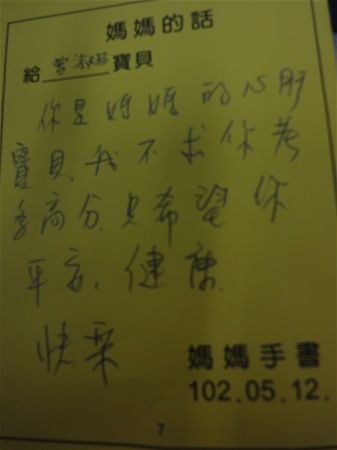 媽媽的話
給曾淑芬寶貝
你是媽媽的心肝
寶貝我不求你考
多高分，只希望你
平安、健康
快樂
媽媽手書
102.05.12.
7